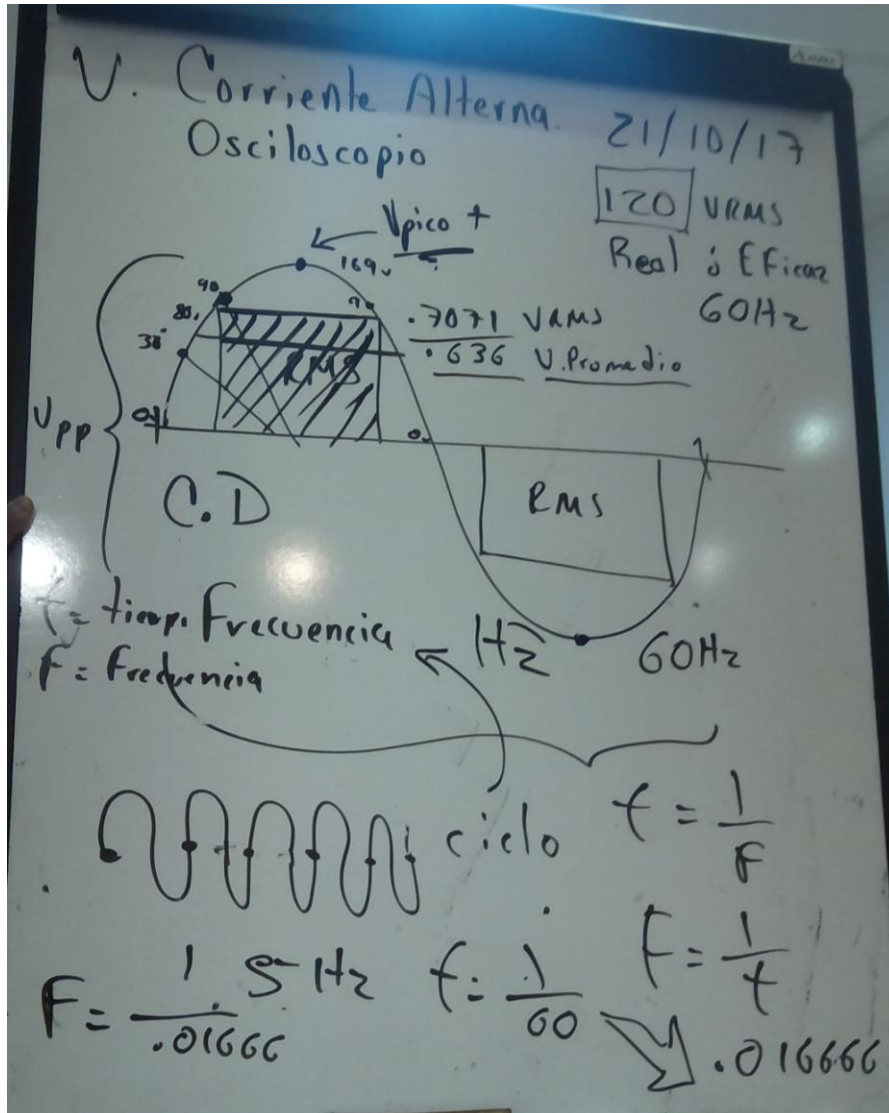 V. Corriente Alterna
Osciloscopio
21/10/17
120 VRMS
Real ó Eficaz
60Hz
Vpico +
169v
90
30°
.7071 VRMS
.636 V.Promedio
RMS
Vpp
0
0
C.D
RMS
t = tiemp. Frecuencia
F = Frecuencia
Hz 60Hz
ciclo
t = 1/F
F = 1/.01666
5 Hz
t = 1/60
F = 1/t
.016666